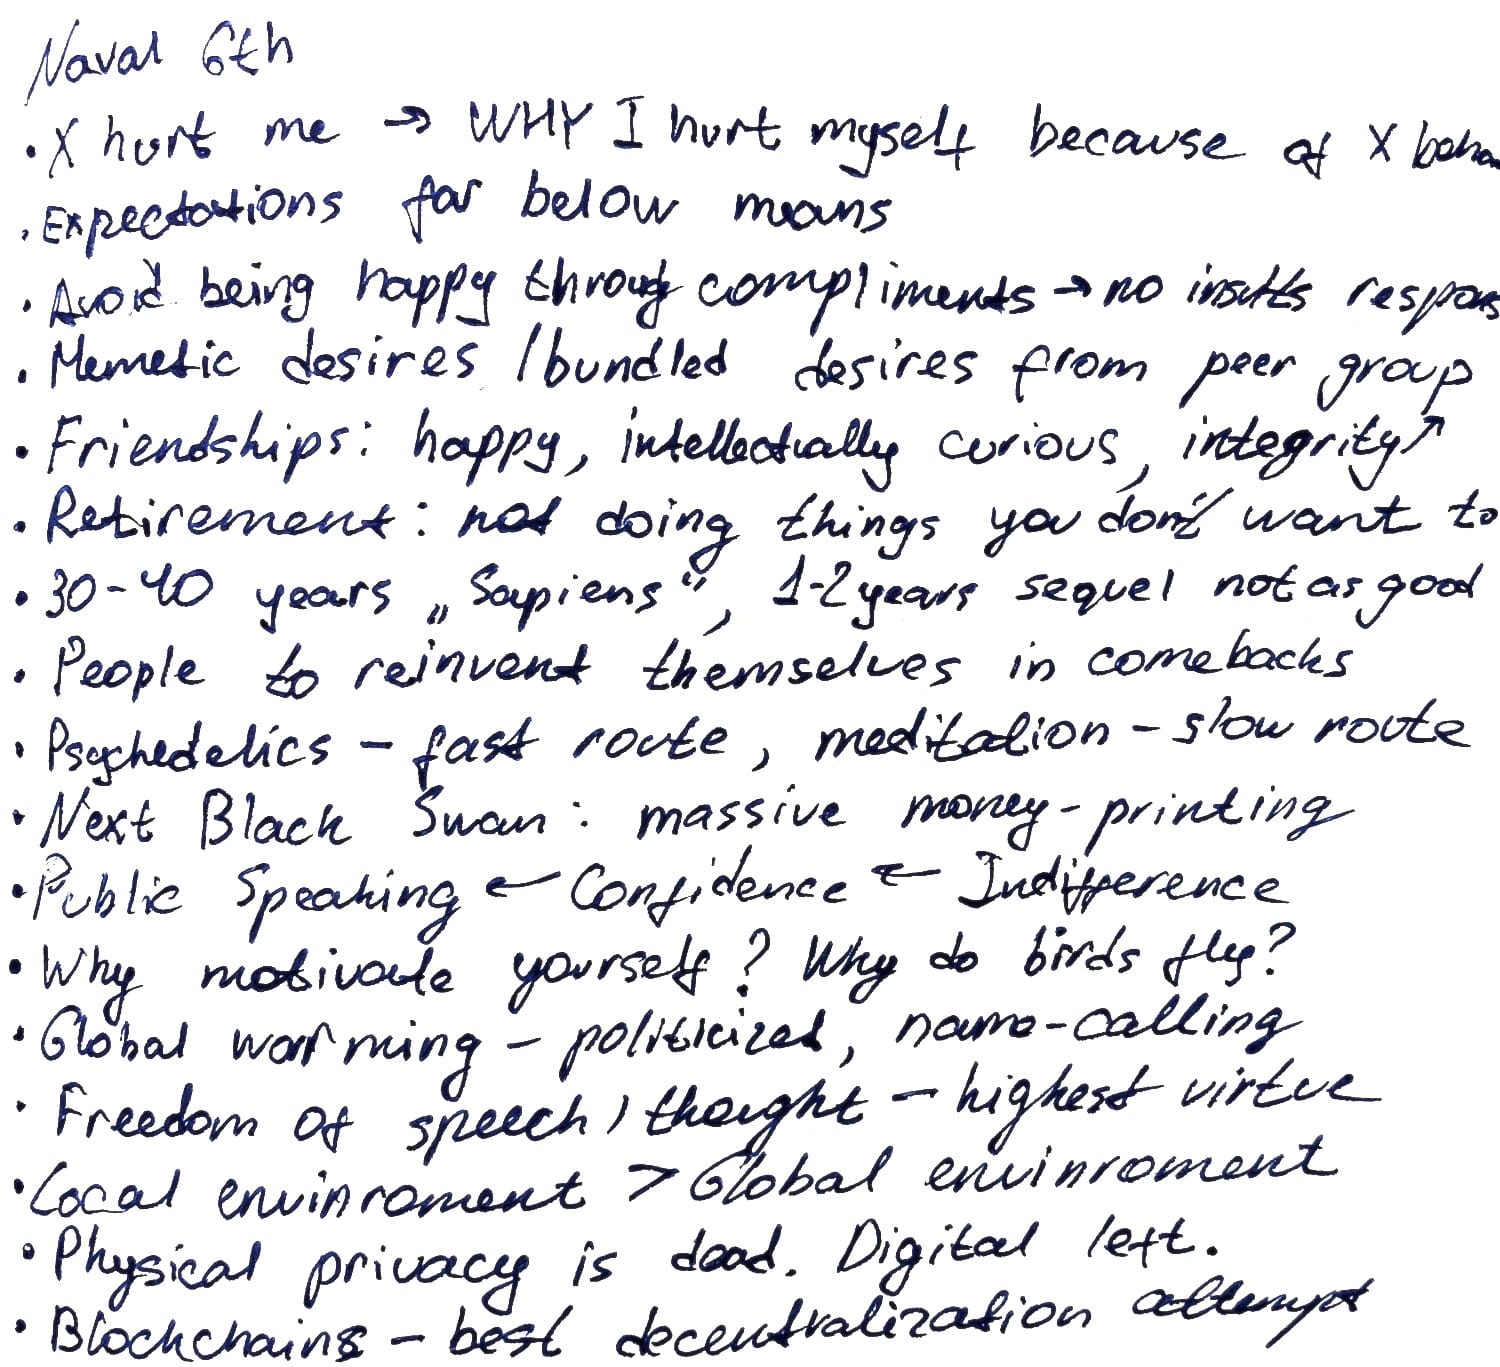 Naval 6th
• X hurt me → WHY I hurt myself because of X beha
• Expectations far below means
• Avoid being happy throug compliments → no insults respons
• Memetic desires / bundled desires from peer group
• Friendships: happy, intellectually curious, integrity↗
• Retirement: not doing things you don't want to
• 30-40 years „Sapiens“, 1-2 years sequel not as good
• People to reinvent themselves in comebacks
• Psychedelics - fast route, meditation - slow route
• Next Black Swan: massive money-printing
• Public Speaking ← Confidence ← Indifference
• Why motivate yourself? Why do birds fly?
• Global warming - politicized, name-calling
• Freedom of speech, thought - highest virtue
• Local envinroment > Global envinroment
• Physical privacy is dead. Digital left.
• Blockchains - best decentralization attempt